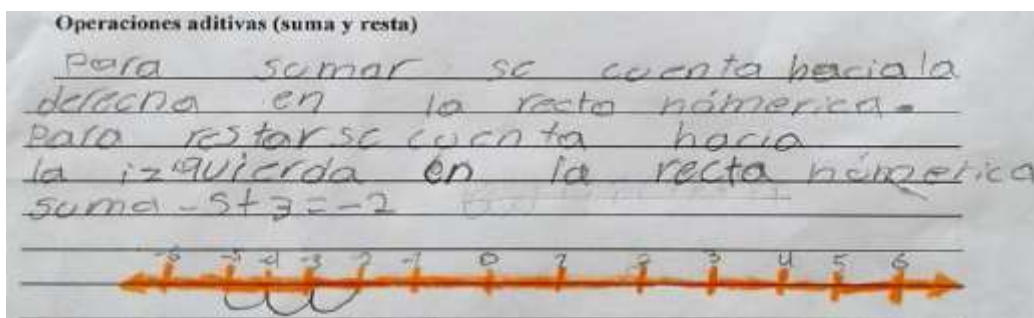 Operaciones aditivas (suma y resta)
Para sumar se cuenta hacia la
derecha en la recta númerica.
para restar se cuenta hacia
la izquierda en la recta númerica
suma -5+3=-2
-6 -5 -4 -3 -2 -1 0 1 2 3 4 5 6